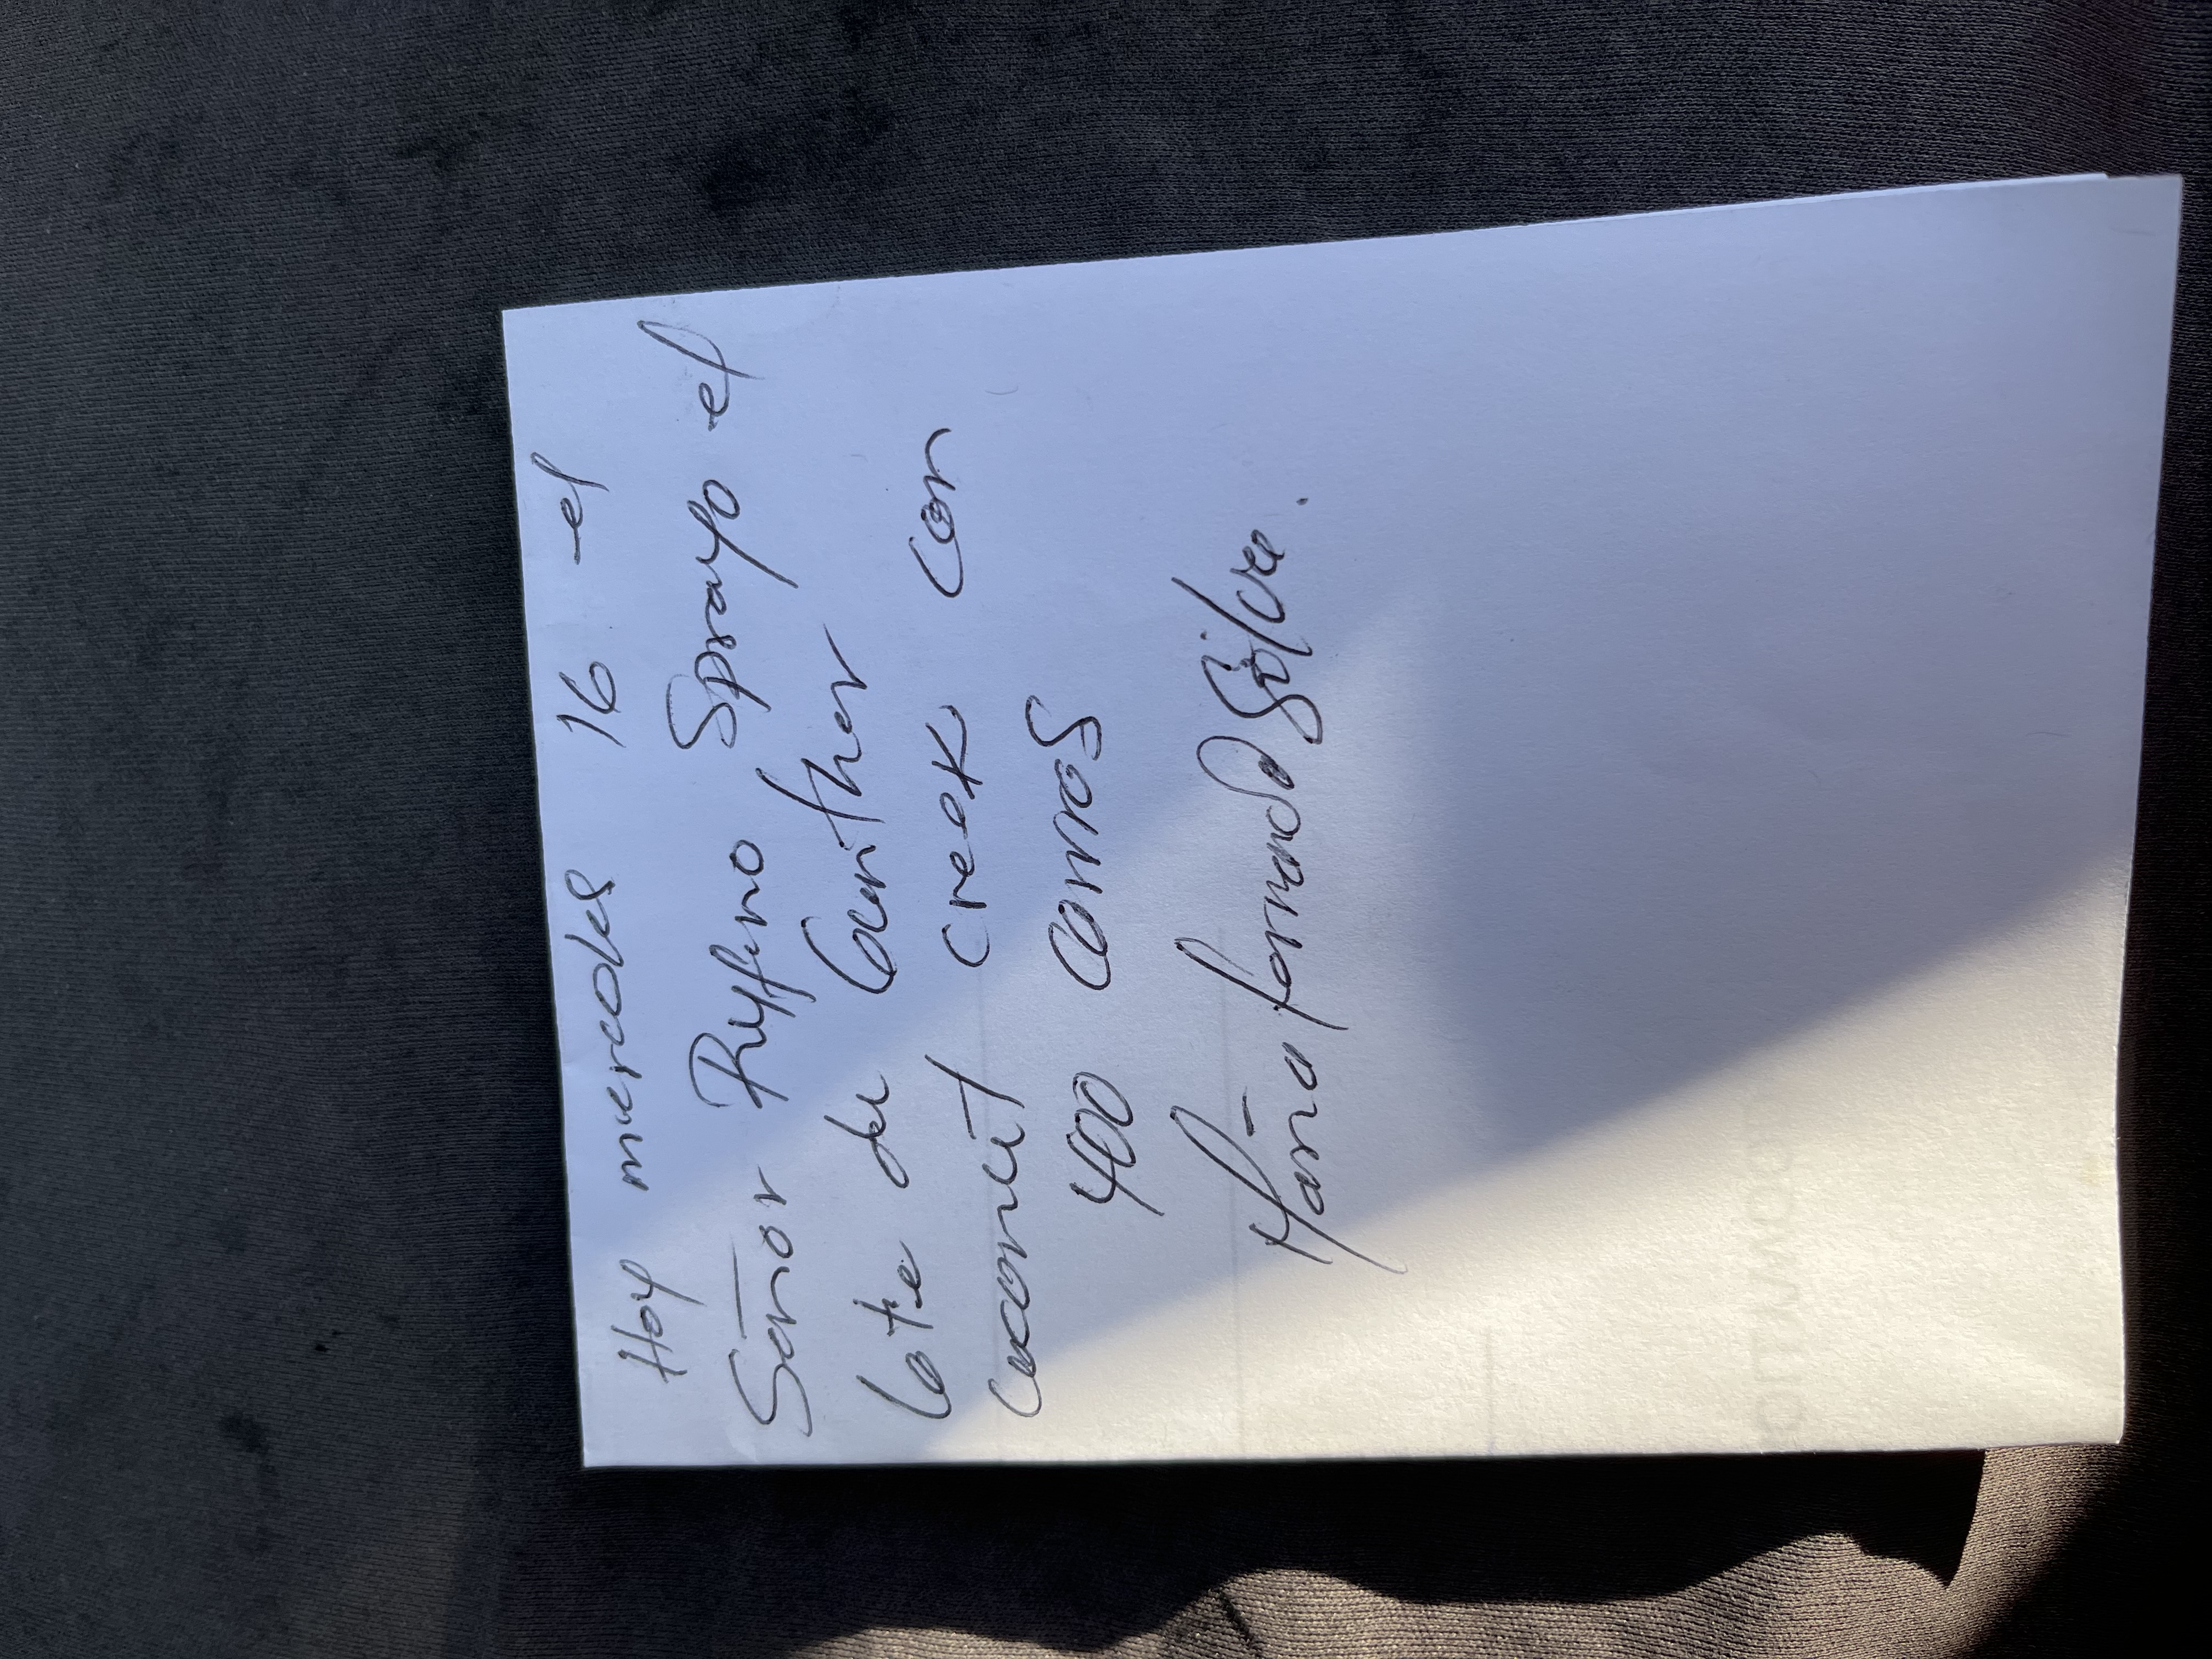 Hoy miercoles 16 el
Señor Ruffino Sprayo el
lote de Gunther
Creek con
400 Carros
Maria fernanda Silva.